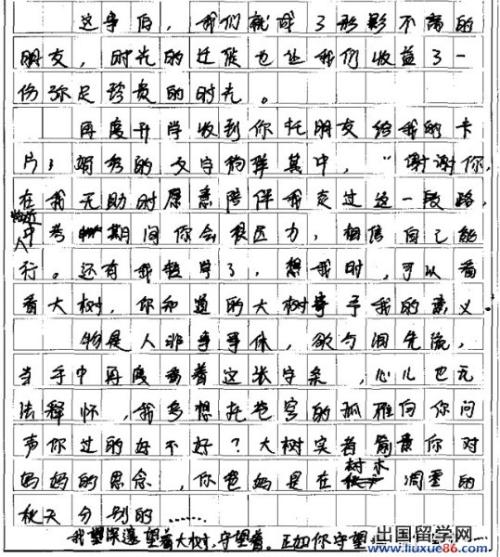 这事后，我们就成了形影不离的
朋友，时光的迁徙也让我们收益了一
份弥足珍贵的时光。
再度开学收到你托朋友给我的卡
片；娟秀的文字徜徉其中，“谢谢你，
在我无助时愿意陪伴我走过这一段路，
临近
中考期间你会很压力，相信自己能
行。还有我转学了，想我时，可以看
看大树，你知道的大树寄予我的意义。
物是人非事事休，欲与泪先流，
当手中再度看着这张字条，心儿也无
法释怀，我多想托苍穹的孤雁向你问
声你过的好不好？大树实着你对
妈妈的思念，你爸妈是在树木凋零的
秋天分别的……
我望深邃望着大树，守望着。正如你守望
出国留学网
www.liuxue86.com